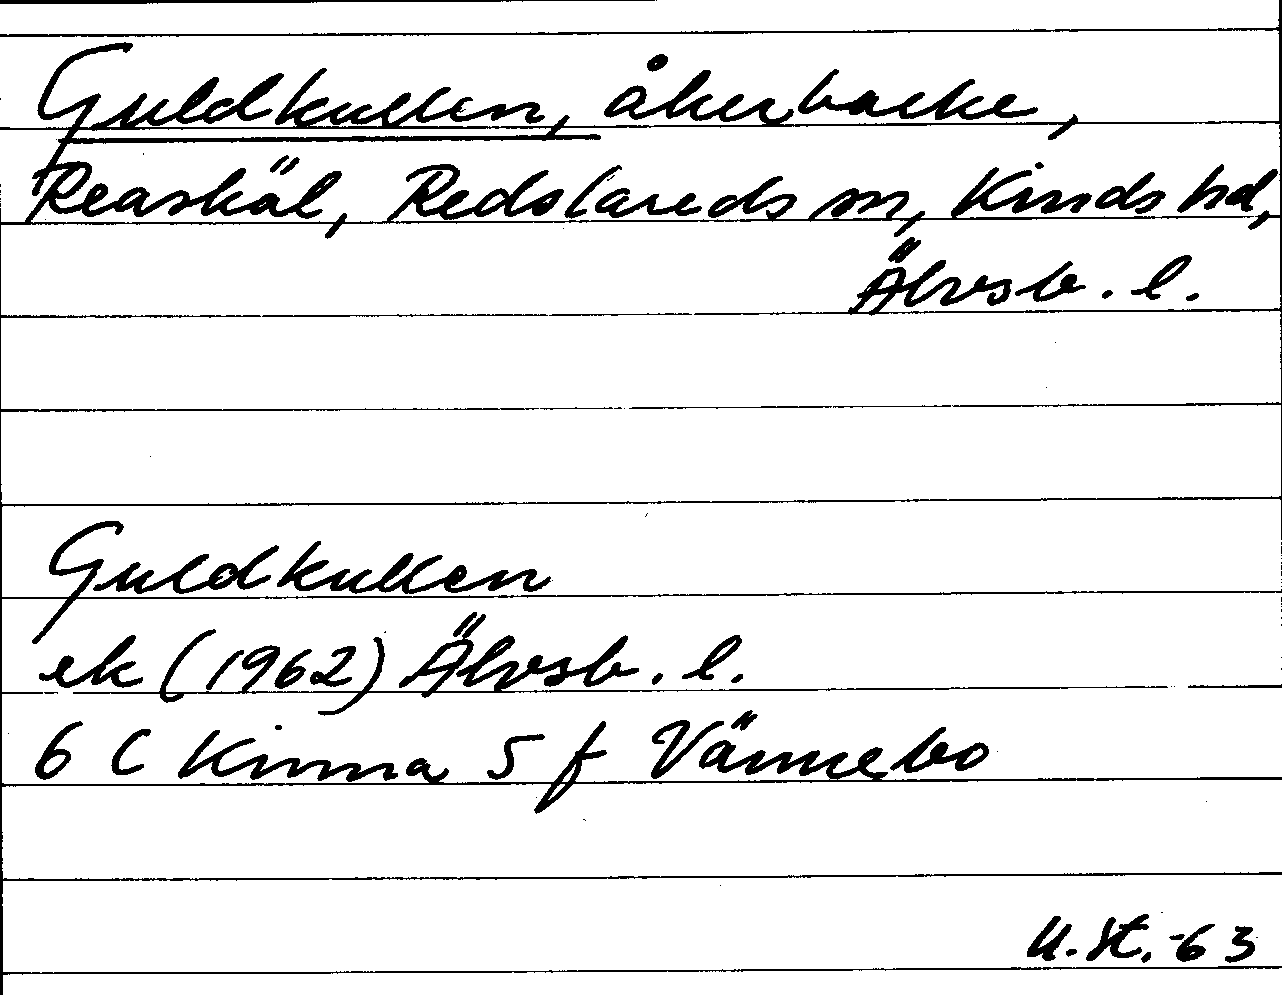 Guldkullen, åkerbacke,
Reaskäl, Redslareds sn, Kinds hd,
Älvsb. l.
Guldkullen
ek (1962) Älvsb. l.
6 C Kinna 5 f Vännebo
U.St.-63